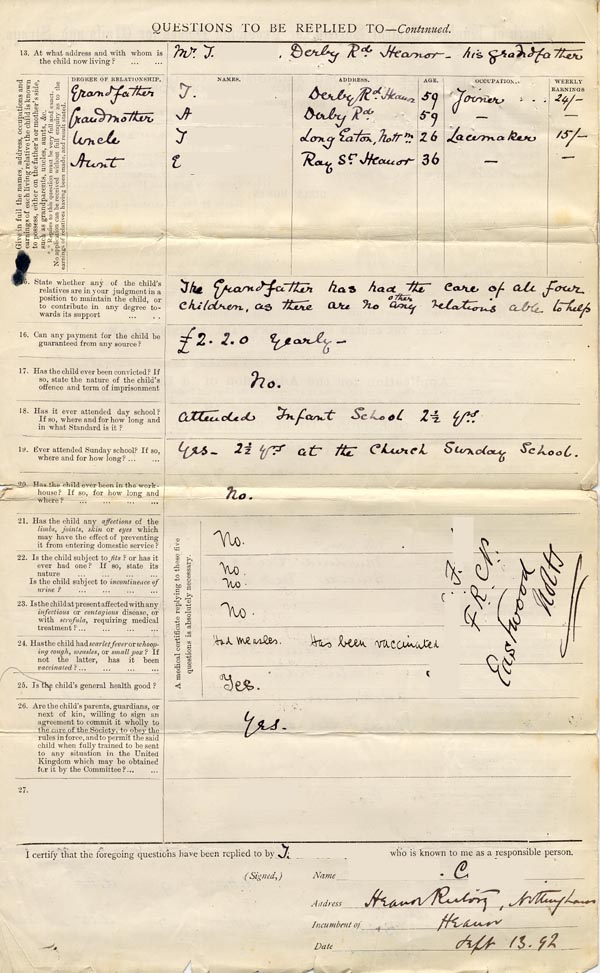 QUESTIONS TO BE REPLIED TO—Continued.
13. At what address and with whom is the child now living? ... ...
Mr. T. , Derby Rd Heanor - his grandfather
Give in full the names, address, occupations and
earnings of each living relative the child is known
to possess, either on the father's or mother's side,
such as grandparents, uncles, aunts, &c.
* Replies to this question must be very full and exact.
No application can be received without full enquiry as to the
earnings of relatives having been made, and result stated.
DEGREE OF RELATIONSHIP. NAMES. ADDRESS. AGE. OCCUPATION. WEEKLY EARNINGS
Grandfather T. Derby Rd. Heanor 59 Joiner ... 24/-
Grandmother A Derby Rd 59 — —
Uncle T Long Eaton, Nottm 26 Lacemaker 15/-
Aunt E Ray St. Heanor 36 — —
15. State whether any of the child's
relatives are in your judgment in a
position to maintain the child, or
to contribute in any degree to-
wards its support ... ..
The Grandfather has had the care of all four
children, as there are no other any relations able to help
16. Can any payment for the child be
guaranteed from any source?
£2. 2. 0 Yearly -
17. Has the child ever been convicted? If
so, state the nature of the child's
offence and term of imprisonment
No.
18. Has it ever attended day school?
If so, where and for how long and
in what Standard is it?
Attended Infant School 2½ yrs.
19. Ever attended Sunday school? If so,
where and for how long? ... ...
Yes - 2½ yrs at the Church Sunday School.
20. Has the child ever been in the work-
house? If so, for how long and
where? ... ... ... ...
No.
A medical certificate replying to these five
questions is absolutely necessary.
21. Has the child any affections of the
limbs, joints, skin or eyes which
may have the effect of preventing
it from entering domestic service?
No.
22. Is the child subject to fits? or has it
ever had one? If so, state its
nature ... ... ... ...
No.
Is the child subject to incontinence of
urine? ... ... ... ...
No.
23. Is the child at present affected with any
infectious or contagious disease, or
with scrofula, requiring medical
treatment? ... ... ... ...
No
24. Has the child had scarlet fever or whoop-
ing cough, measles, or small pox? If
not the latter, has it been
vaccinated? ... ... ... ...
Had measles. Has been vaccinated
25. Is the child's general health good?
Yes.
F.
F. R. C. S.
Eastwood
Notts
26. Are the child's parents, guardians, or
next of kin, willing to sign an
agreement to commit it wholly to
the care of the Society, to obey the
rules in force, and to permit the said
child when fully trained to be sent
to any situation in the United
Kingdom which may be obtained
for it by the Committee? ... ...
Yes.
27.
I certify that the foregoing questions have been replied to by T. who is known to me as a responsible person.
(Signed,) Name . C.
Address Heanor Rectory, Nottingham
Incumbent of Heanor
Date Sept 13. 92